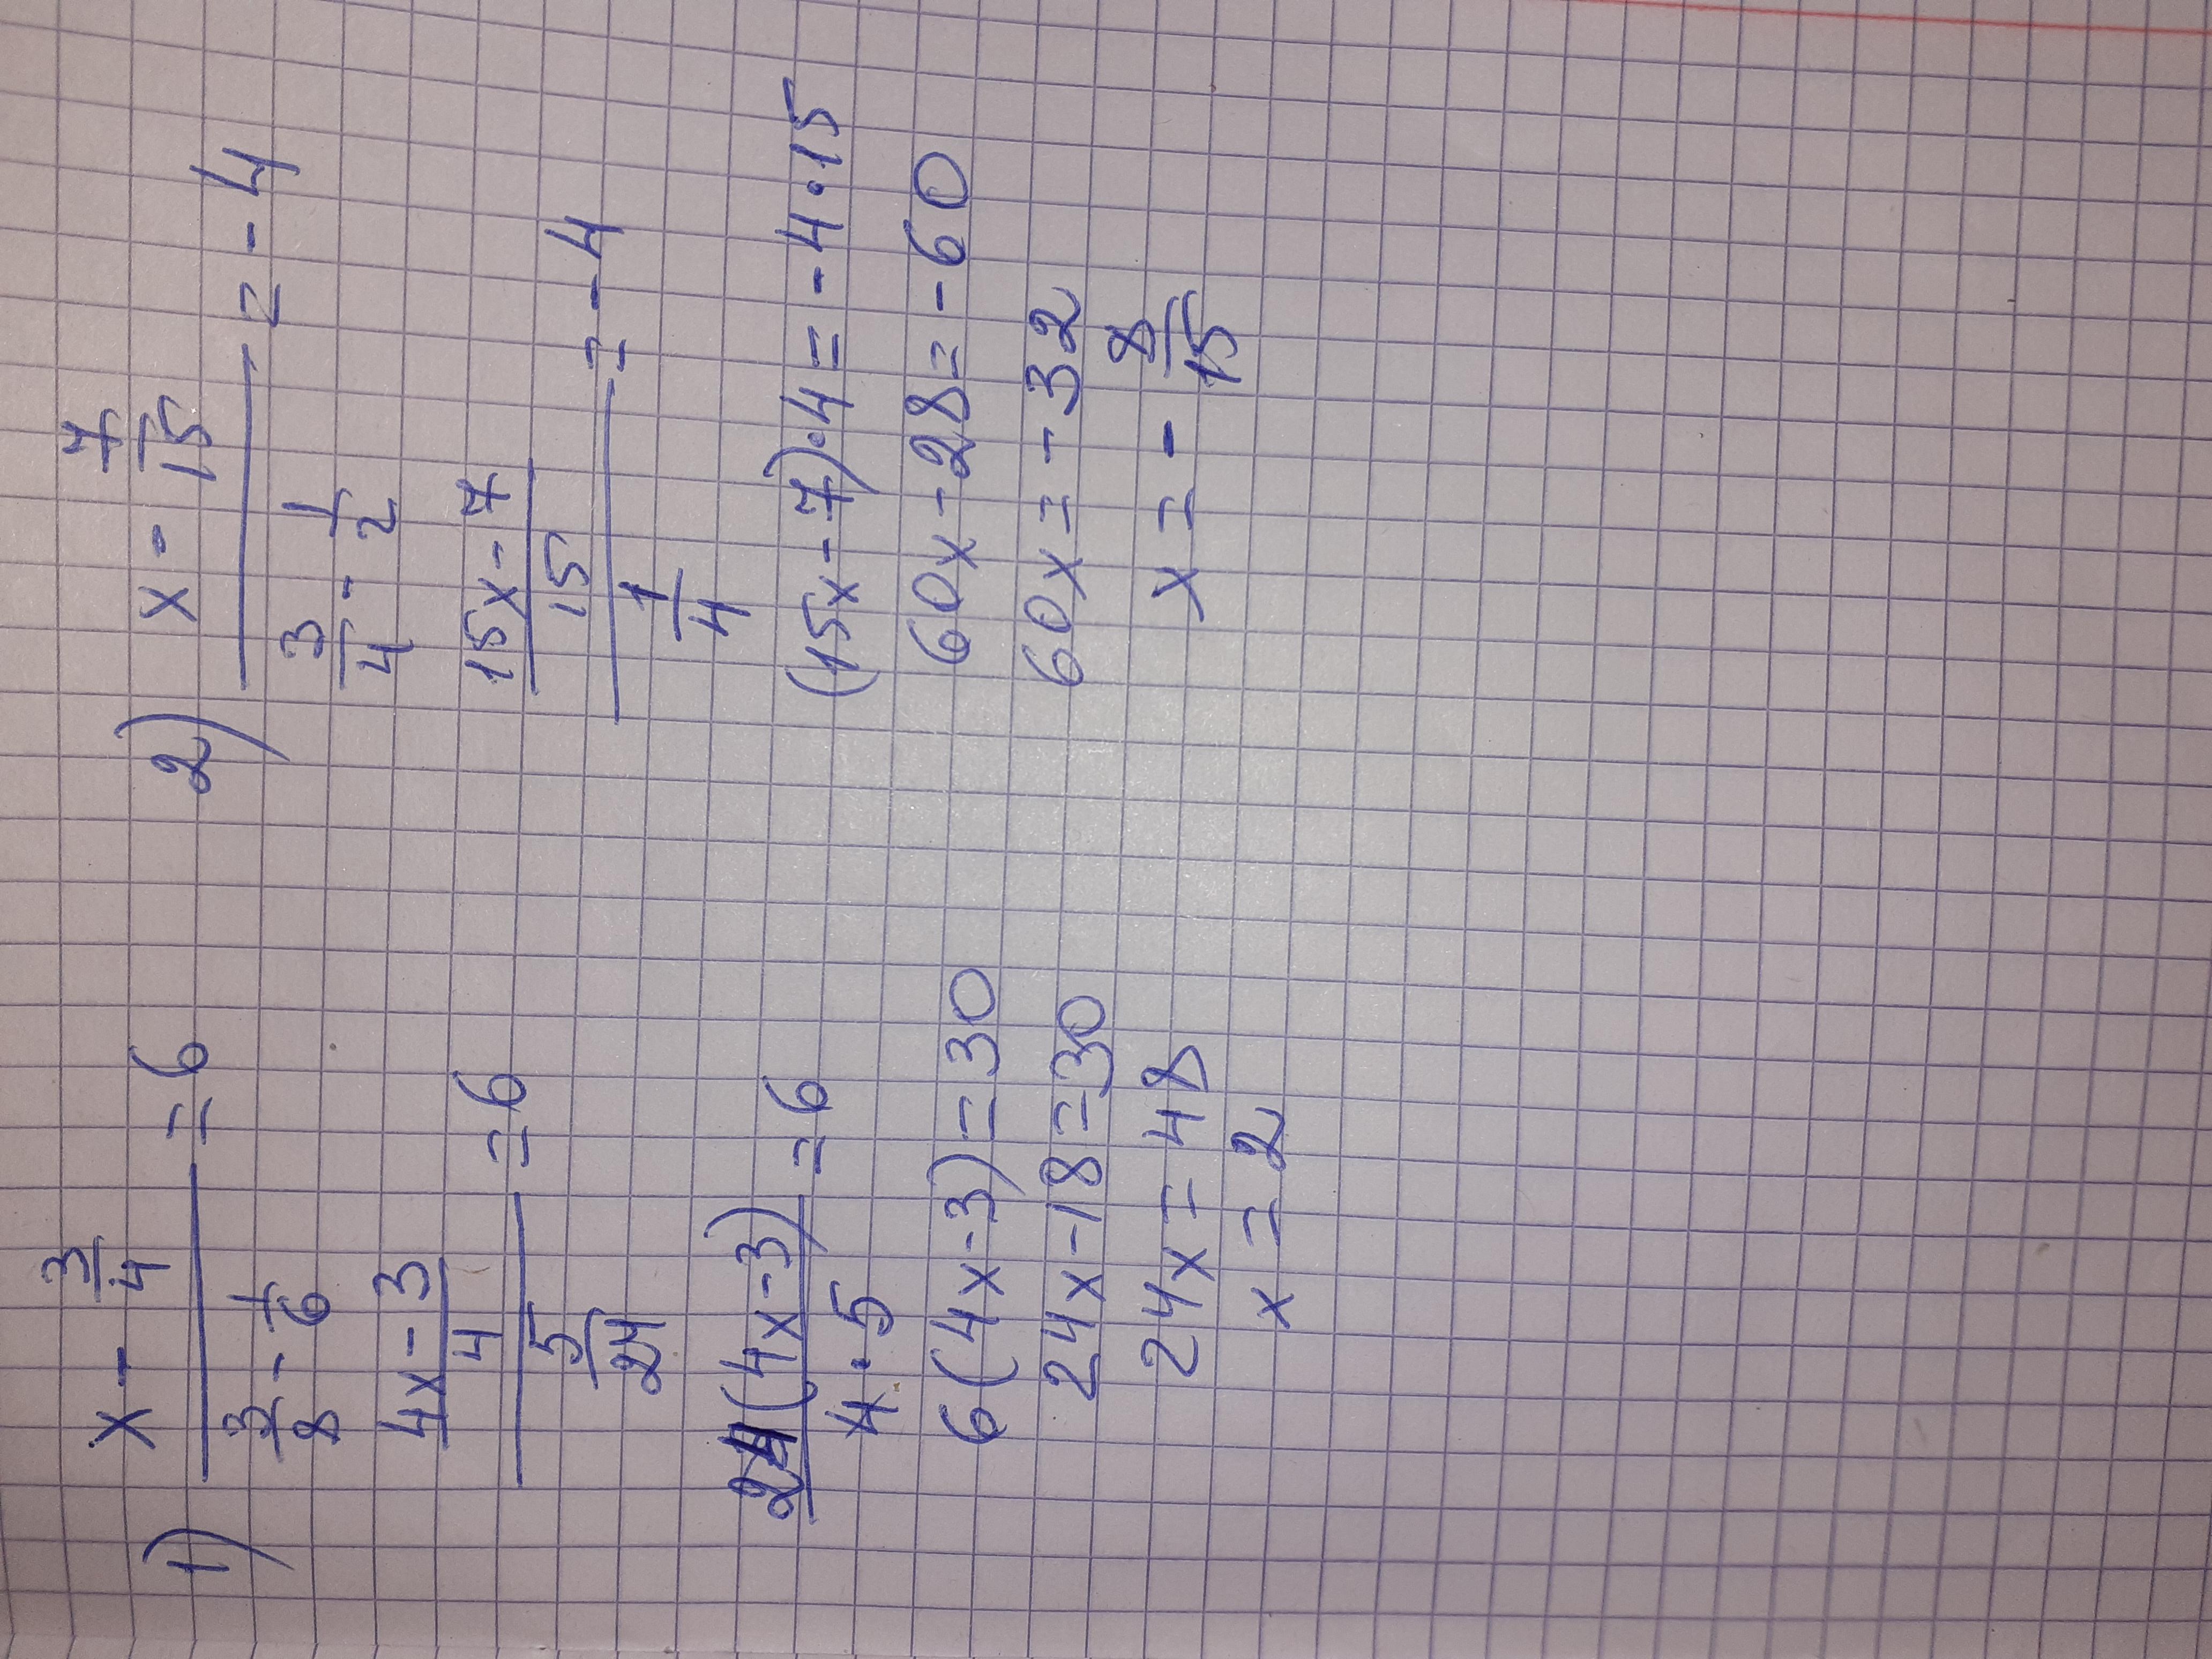 1) (x - 3/4)/(3/8 - 1/6) = 6
((4x - 3)/4)/(5/24) = 6
24(4x-3)/(4·5) = 6
6(4x-3)=30
24x-18=30
24x=48
x=2
2) (x - 7/15)/(3/4 - 1/2) = -4
((15x-7)/15)/(1/4) = -4
(15x-7)·4=-4·15
60x-28=-60
60x=-32
x=-8/15